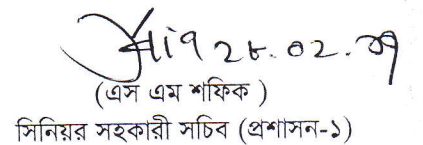 ২৮.০২.
(এস এম শফিক )
সিনিয়র সহকারী সচিব (প্রশাসন-১)